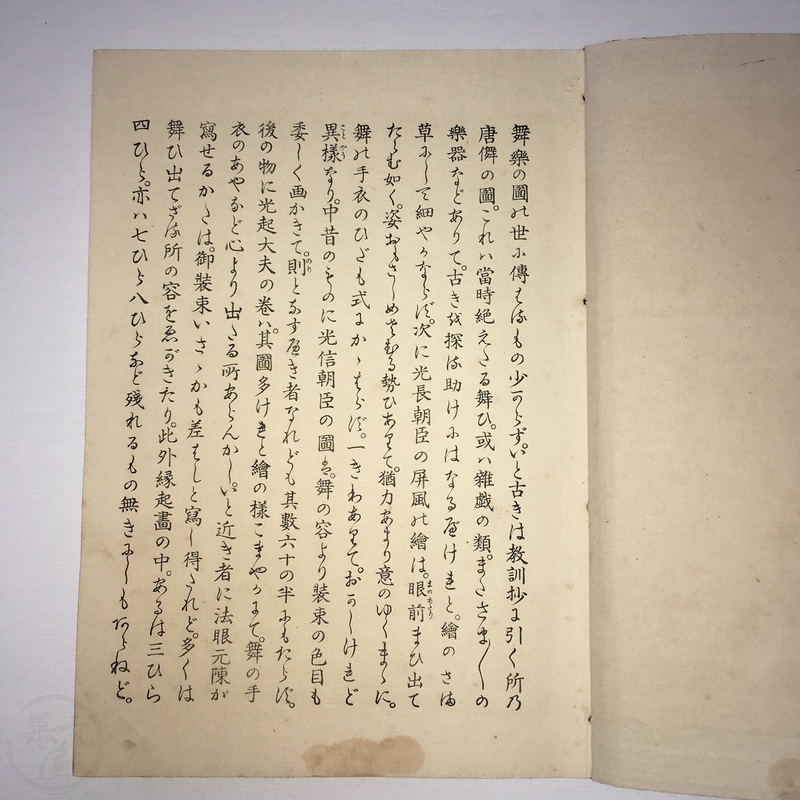 舞樂の圖の世に傳はるもの少からず。いと古きは教訓抄に引く所乃
唐儛の圖。これハ當時絶えたる舞ひ。或ハ雜戯の類。またさま〲の
樂器などありて。古きを探る助けにはなるべけれど。繪のさま
草にして細やかならず。次に光長朝臣の屏風の繪は。眼前まひ出て
たらむ如く。姿おもさしめでむる勢ひありて。猶力あまり意のゆくまゝに。
舞の手衣のひだも式にかゝはらず。一きわありて。おかしけれど
異樣なり。中昔のものに光信朝臣の圖は。舞の容より裝束の色目も
委しく画かきて。則となすべき者なれども其數六十の半にもたらず。
後の物に光起大夫の卷ハ。其圖多けれど繪の樣こまやかにて。舞の手
衣のあやなど心より出たる所あらんかし。いと近き者に法眼元陳が
寫せるかたは。御裝束いさゝかも差はしと寫し得たれど。多くは
舞ひ出てざる所の容をゑがきたり。此外縁起畫の中。あるは三ひら
四ひら。亦ハ七ひら八ひらなど殘れるもの無きにしもあらねど。
まのあたり
ことやう
のり